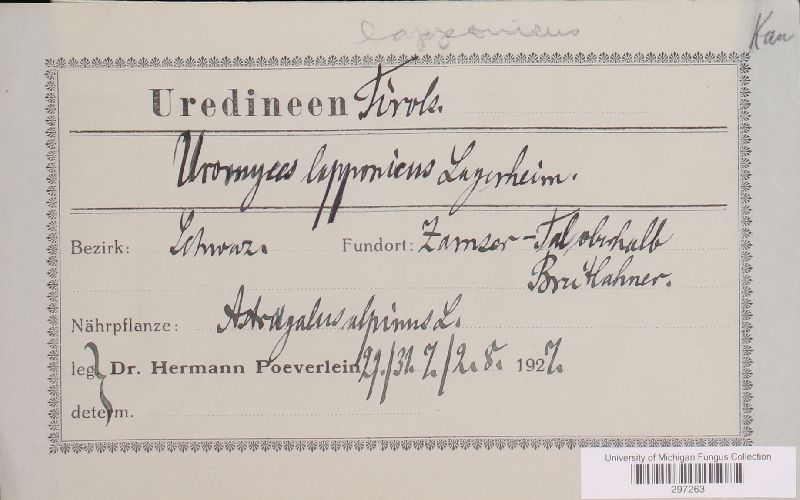 lapponicus
Uredineen Tirols.
Uromyces lapponicus Lagerheim.
Bezirk: Schwaz. Fundort: Zamser-Tal oberhalb
Nährpflanze: Astragalus alpinus L.
leg. Dr. Hermann Poeverlein, 29./31. 7./2. 8. 1927.
determ.
University of Michigan Fungus Collection
297263